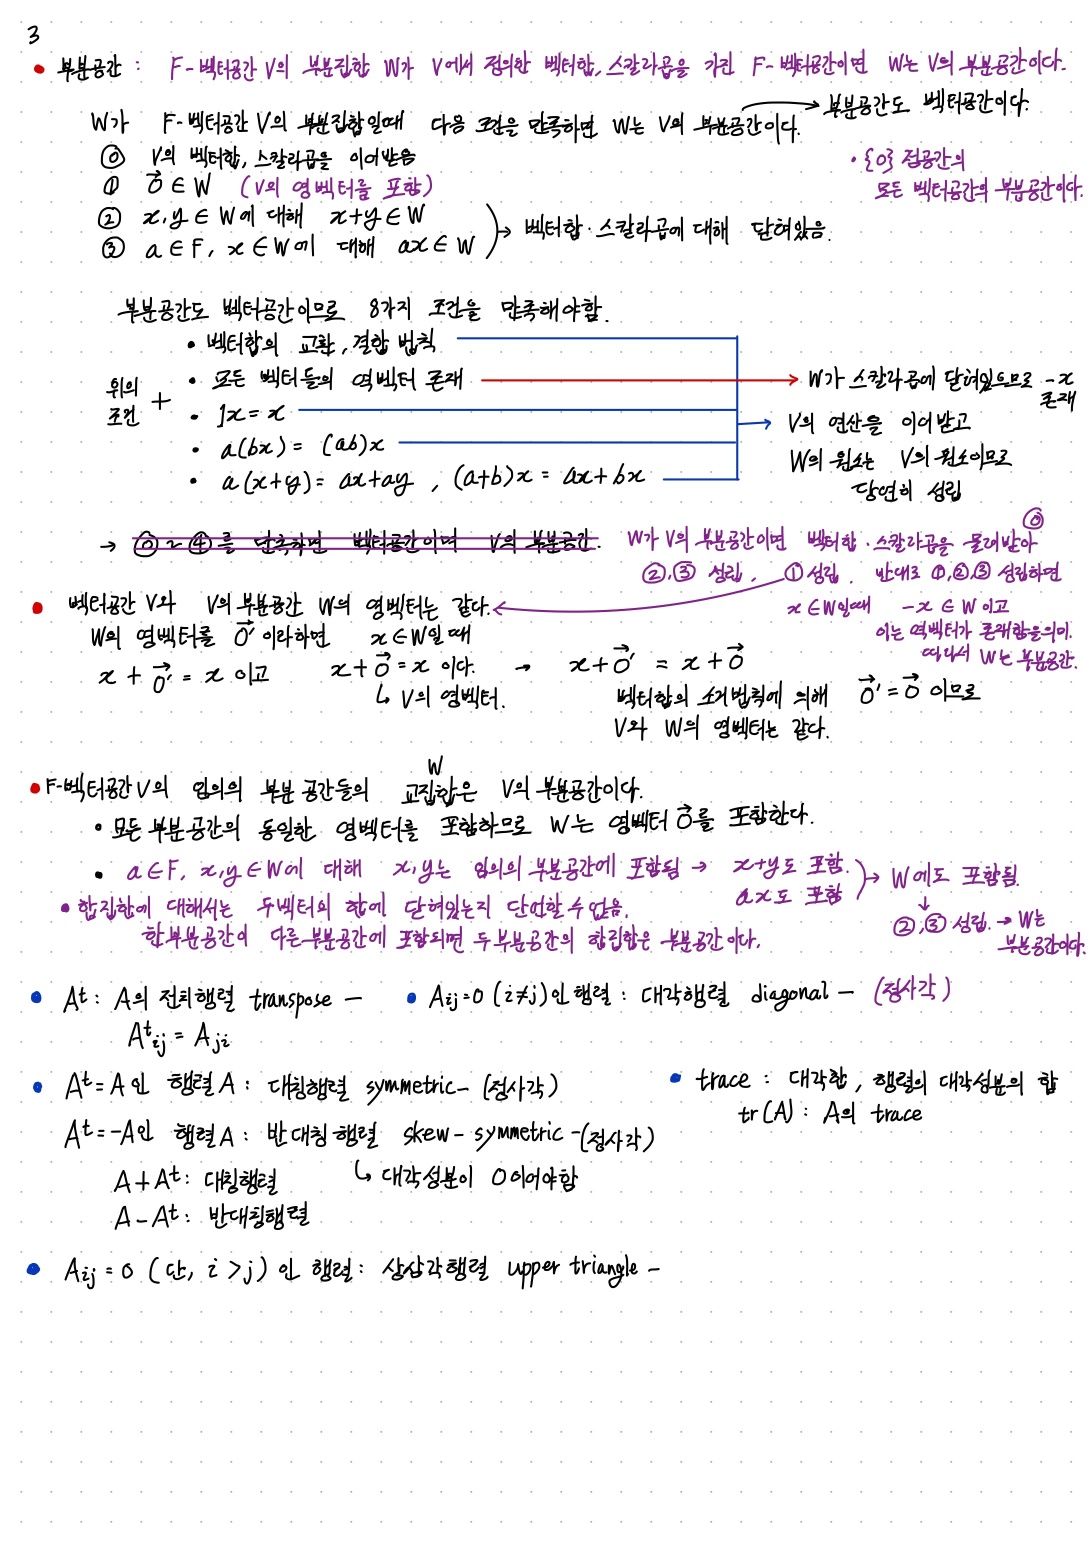 3
• 부분공간 : F-벡터공간 V의 부분집합 W가 V에서 정의한 벡터합, 스칼라곱을 가진 F-벡터공간이면 W는 V의 부분공간이다.
W가 F-벡터공간 V의 부분집합일때 다음 조건을 만족하면 W는 V의 부분공간이다. → 부분공간도 벡터공간이다.
⓪ V의 벡터합, 스칼라곱을 이어받음
① 0⃗ ∈ W (V의 영벡터를 포함)
② x,y ∈ W에 대해 x+y ∈ W
③ a ∈ F, x ∈ W에 대해 ax ∈ W
→ 벡터합·스칼라곱에 대해 닫혀있음.
· {0} 점공간의
모든 벡터공간의 부분공간이다.
부분공간도 벡터공간이므로 8가지 조건을 만족해야함.
위의 조건 +
• 벡터합의 교환, 결합 법칙
• 모든 벡터들의 역벡터 존재 → W가 스칼라곱에 닫혀있으므로 -x 존재
• 1x = x
• a(bx) = (ab)x
• a(x+y) = ax+ay , (a+b)x = ax+bx
→ V의 연산을 이어받고
W의 원소는 V의 원소이므로
당연히 성립
→ ⓪~④를 만족하면 벡터공간이며 V의 부분공간.
W가 V의 부분공간이면 벡터합·스칼라곱을 물려받아 ⓪
②,③ 성립, ①성립. 반대로 ①,②,③ 성립하면
x ∈ W일때 -x ∈ W 이고
이는 역벡터가 존재함을의미.
따라서 W는 부분공간.
• 벡터공간 V와 V의 부분공간 W의 영벡터는 같다.
W의 영벡터를 0⃗' 이라하면 x ∈ W일 때
x + 0⃗' = x 이고 x + 0⃗ = x 이다. → x + 0⃗' = x + 0⃗
↳ V의 영벡터.
벡터합의 소거법칙에 의해 0⃗' = 0⃗ 이므로
V와 W의 영벡터는 같다.
W
• F-벡터공간 V의 임의의 부분 공간들의 교집합은 V의 부분공간이다.
• 모든 부분공간의 동일한 영벡터를 포함하므로 W는 영벡터 0⃗를 포함한다.
• a ∈ F, x,y ∈ W에 대해 x,y는 임의의 부분공간에 포함됨 → x+y도 포함.
ax도 포함
→ W에도 포함됨.
↓
②,③ 성립. → W는
부분공간이다.
• 합집합에 대해서는 두벡터의 합에 닫혀있는지 단언할 수 없음.
한부분공간이 다른 부분공간에 포함되면 두 부분공간의 합집합은 부분공간이다.
• Aᵗ : A의 전치행렬 transpose –
Aᵗij = Aji
• Aij = 0 (i≠j)인 행렬 : 대각행렬 diagonal – (정사각)
• Aᵗ = A 인 행렬 A : 대칭행렬 symmetric – (정사각)
Aᵗ = -A인 행렬 A : 반대칭 행렬 skew-symmetric – (정사각)
↳ 대각성분이 0이어야함
A + Aᵗ : 대칭행렬
A - Aᵗ : 반대칭행렬
• trace : 대각합, 행렬의 대각성분의 합
tr(A) : A의 trace
• Aij = 0 (단, i > j) 인 행렬 : 상삼각행렬 upper triangle –